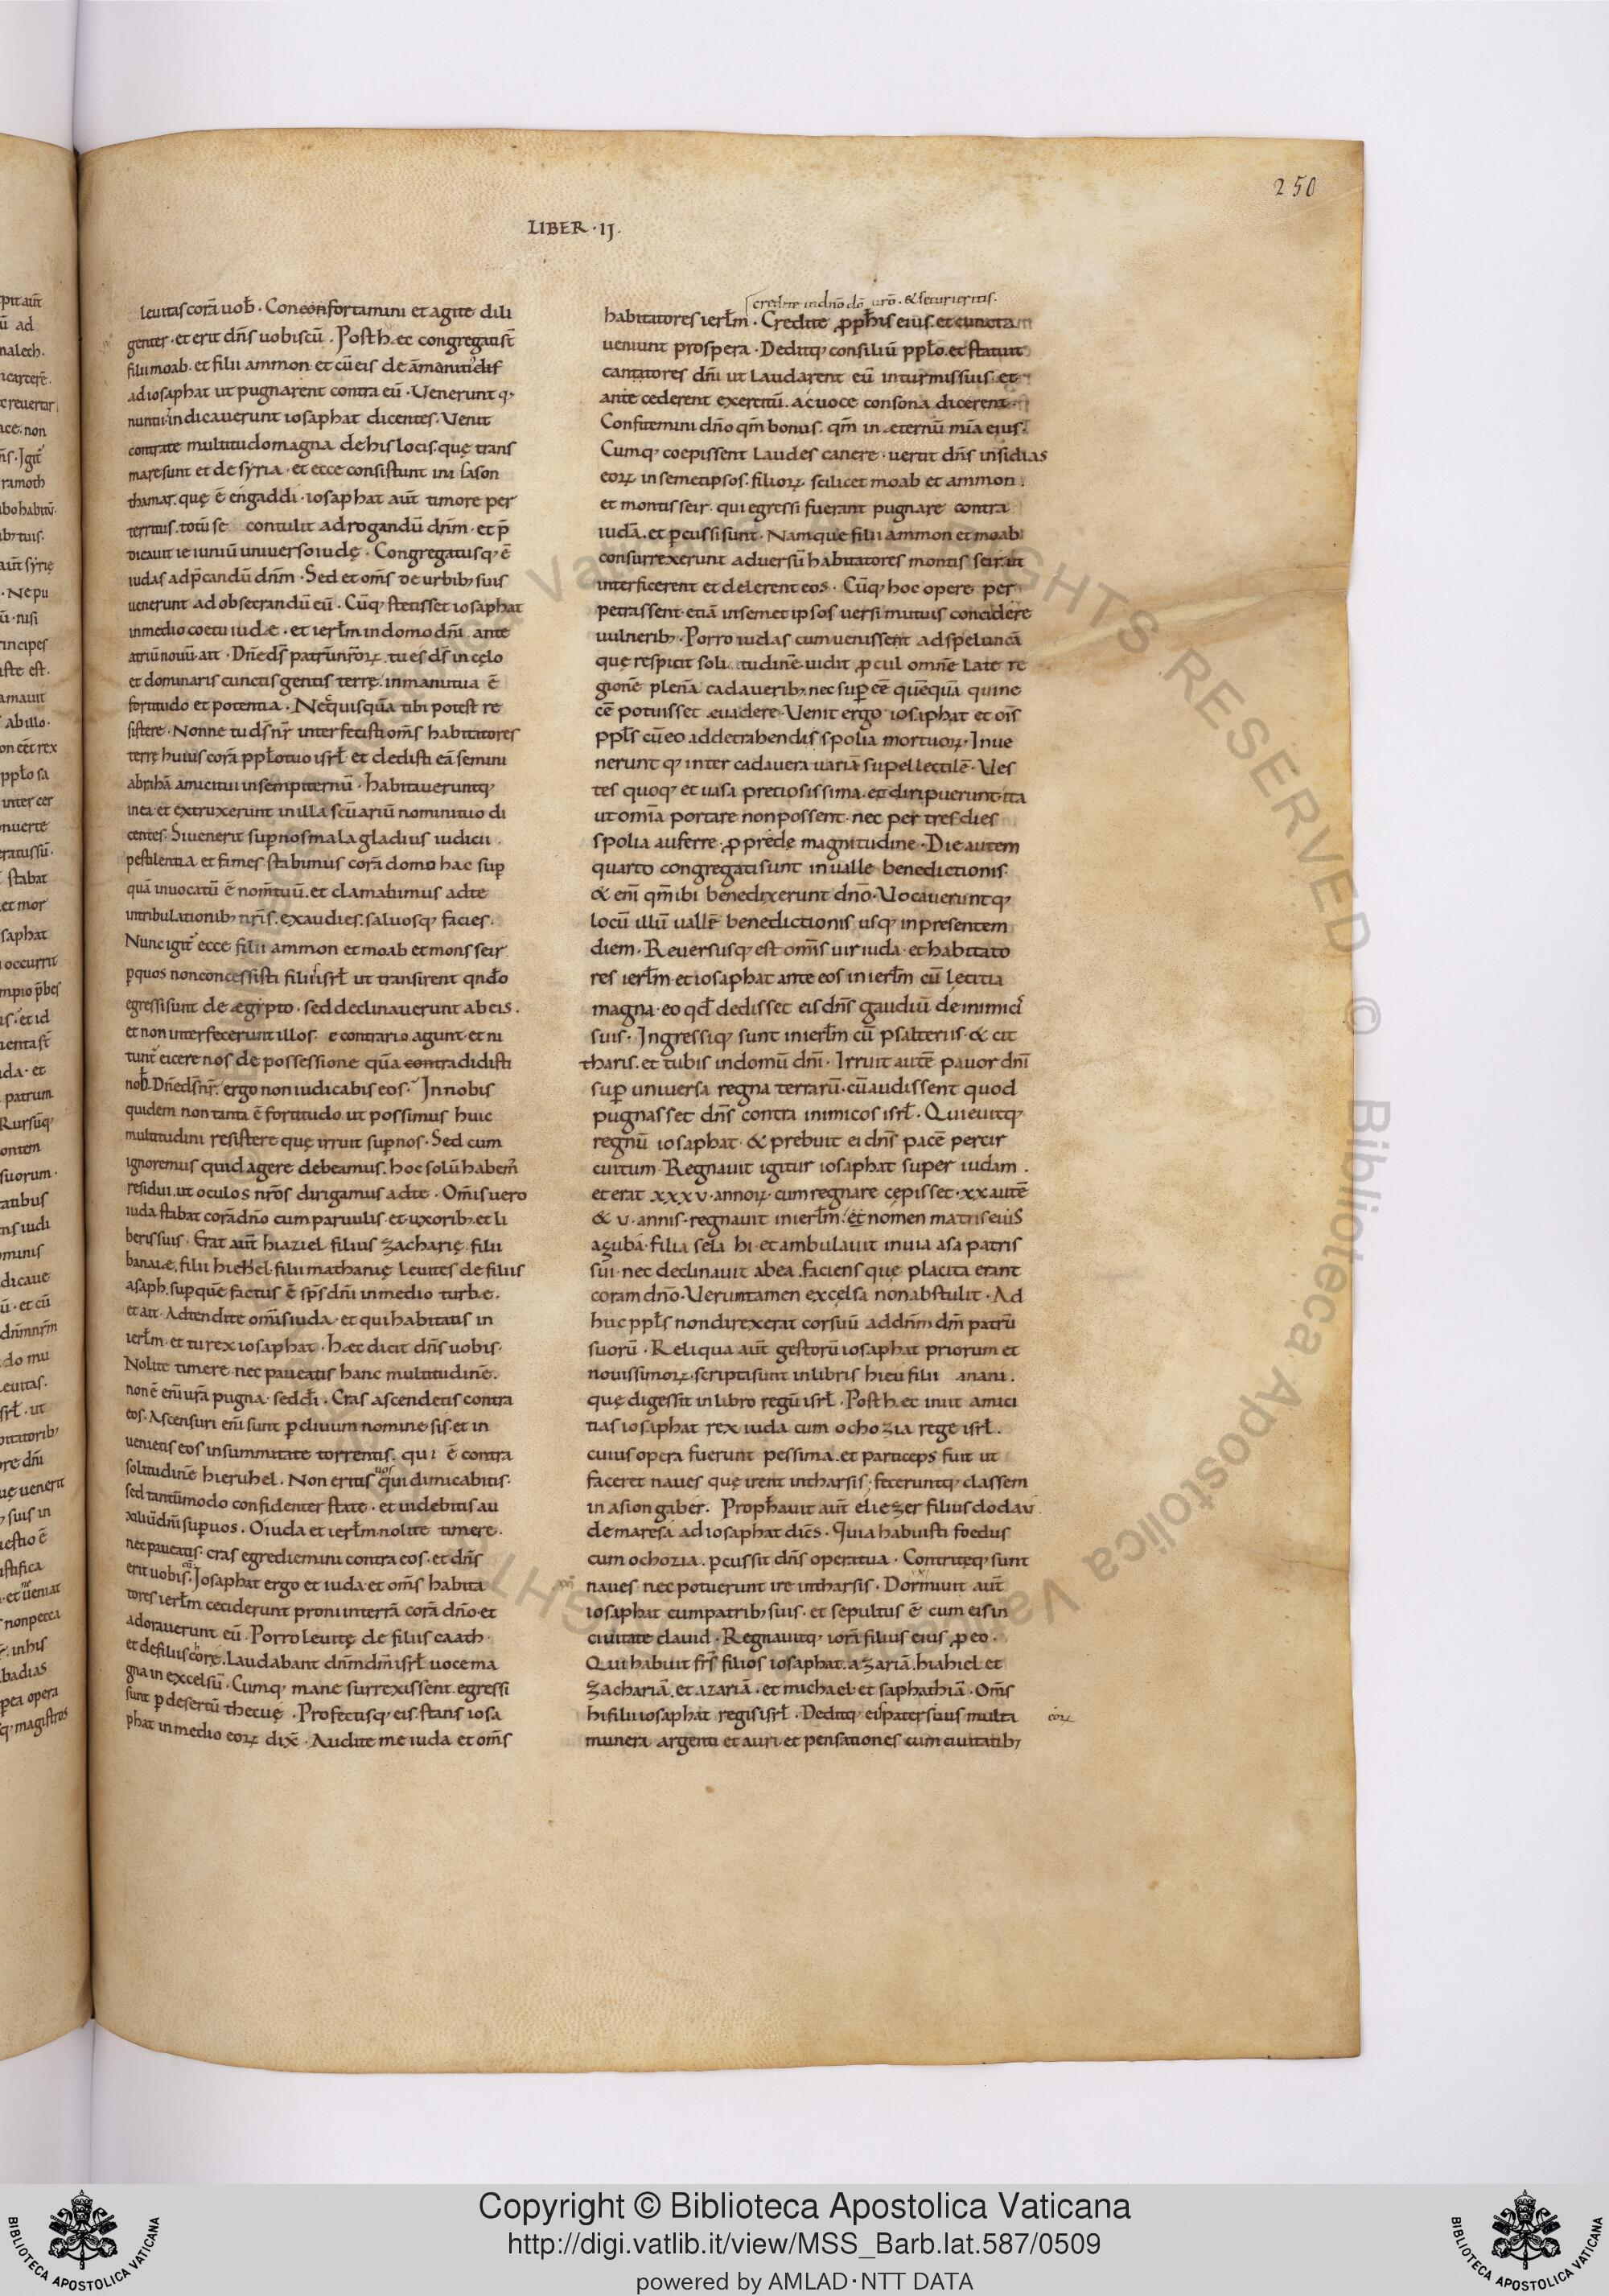 250
LIBER · IJ.
leuitas corā uob̄ · Conconfortamini et agite dili
genter · et erit dn̄s uobiscū · Post hæc congregati st̄
filii moab · et filii ammon et cū eis de
ad iosaphat ut pugnarent contra eū · Uenerunt q;
nuntii indicauerunt iosaphat dicentes. Uenit
contra te multitudo magna de his locis. quę trans
mare sunt et de syria · et ecce consistunt in
thamar. quę ē engaddi · iosaphat aūt timore per
territus. totū se contulit ad rogandū dn̄m · et p̄
dicauit ieiuniū uniuerso iudę · Congregatusq; ē
iudas ad p̄candū dn̄m · Sed et om̄s de urbib; suis
uenerunt ad obsecrandū eū · Cūq; stetisset iosaphat
in medio coetu iudæ · et ierl̄m in domo dn̄i . ante
atriū nouū. ait · Dn̄e ds̄ patrū nr̄orꝝ . tu es ds̄ in cęlo
et dominaris cunctis gentis terrę. in manu tua ē
fortitudo et potentia . Nec quisquā tibi potest re
sistere · Nonne tu ds̄ nr̄ interfecisti om̄s habitatores
terrę huius corā pplo tuo isrl̄ · et dedisti eā semini
abrahā amici tui in sempiternū · habitaueruntq;
in ea et extruxerunt in illa scūariū nomini tuo di
centes · Si uenerit sup nos mala gladius iudicii ·
pestilentia et fames. stabimus corā domo hac sup
quā inuocatū ē nom̄ tuū . et clamabimus ad te
in tribulationib; nr̄is. exaudies. saluosq; facies ·
Nunc igit̄ ecce filii ammon et moab et mons seir
p quos non concessisti filiis isrl̄ ut transirent qn̄do
egressi sunt de ægypto . sed declinauerunt ab eis .
et non interfecerunt illos · e contrario agunt · et ni
tunt̄ eicere nos de possessione quā contradidisti
nob̄. Dn̄e ds̄ nr̄. ergo non iudicabis eos · In nobis
quidem non tanta ē fortitudo ut possimus huic
multitudini resistere quę irruit sup nos · Sed cum
ignoremus quid agere debeamus. hoc solū habem̄
residui. ut oculos nr̄os dirigamus ad te · Om̄is uero
iuda stabat corā dn̄o cum paruulis · et uxorib; et li
beris suis · Erat aūt hiaziel filius zacharię · filii
banaiæ. filii hiehel. filii mathanię leuites de filiis
asaph. sup quē factus ē sp̄s dn̄i in medio turbæ.
et ait · Adtendite om̄is iuda · et qui habitatis in
ierl̄m · et tu rex iosaphat · hæc dicit dn̄s uobis ·
Nolite timere · nec paueatis hanc multitudinē .
non ē enī ur̄a pugna · sed dī · Cras ascendetis contra
eos. Ascensuri enī sunt p cliuum nomine sis · et in
uenietis eos in summitate torrentis. qui ē contra
solitudinē hieruhel . Non eritis uos qui dimicabitis ·
sed tantūmodo confidenter state · et uidebitis au
xiliū dn̄i sup uos . O iuda et ierl̄m nolite timere .
nec paueatis · cras egrediemini contra eos · et dn̄s
erit uobis · cū Iosaphat ergo et iuda et om̄s habita
tores ierl̄m ceciderunt proni in terrā corā dn̄o · et
adorauerunt eū . Porro leuitę de filiis caath ·
et de filiis chorę. laudabant dn̄m dm̄ isrl̄ uoce ma
gna in excelsū · Cumq; mane surrexissent. egressi
sunt p desertū thecuę . Profectisq; eis. stans iosa
phat in medio eorꝝ dix̄ · Audite me iuda et om̄s
credite in dn̄o dō uro · & securi eritis.
habitatores ierl̄m · Credite pph̄is eius. et cuncta
ueniunt prospera · Deditq; consiliū pplo. et statuit
cantatores dn̄i ut laudarent eū in turmis suis. et
ante cederent exercitū. ac uoce consona dicerent ·
Confitemini dn̄o qm̄ bonus. qm̄ in æternū mīa eius.
Cumq; coepissent laudes canere · uertit dn̄s insidias
eorꝝ in semetipsos. filiorꝝ scilicet moab et ammon .
et montis seir · qui egressi fuerant pugnare contra
iudā. et pcussi sunt · Namque filii ammon et moab
consurrexerunt aduersū habitatores montis seir. ut
interficerent et delerent eos · Cūq; hoc opere per
petrassent · etiā in semetipsos uersi mutuis concidere
uulnerib; · Porro iudas cum uenissent ad speluncā
quę respicit solitudinē. uidit pcul omnē late re
gionē plenā cadauerib; nec supeē quēquā qui ne
cē potuisset euadere · Uenit ergo iosaphat et oīs
ppls cū eo ad detrahendis spolia mortuorꝝ · Inue
neruntq; inter cadauera uariā supellectilē · Ues
tes quoq; et uasa preciosissima. et diripuerunt · ita
ut omīa portare non possent · nec per tres dies
spolia auferre . p prede magnitudine · Die autem
quarto congregati sunt in ualle benedictionis.
& enī qm̄ ibi benedixerunt dn̄o · Uocaueruntq;
locū illū uallē benedictionis usq; in presentem
diem . Reuersusq; est om̄s uir iuda · et habitato
res ierl̄m et iosaphat ante eos in ierl̄m cū lęcitia
magna · eo qđ dedisset eis dn̄s gaudiū de inimicī
suis · Ingressiq; sunt in ierl̄m cū psalteriis & cit
tharis. et tubis in domū dn̄i · Irruit autē pauor dn̄i
sup uniuersa regna terrarū · cū audissent quod
pugnasset dn̄s contra inimicos isrl̄ . Quieuitq;
regnū iosaphat · & prebuit ei dn̄s pacē per cir
cuitum · Regnauit igitur iosaphat super iudam .
et erat xxxv · annorꝝ · cum regnare cępisset · xx autē
& v · annis · regnauit in ierl̄m · et nomen matris eius
aguba · filia selahi · et ambulauit in uia asa patris
sui · nec declinauit ab ea . faciens quę placita erant
coram dn̄o · Uerumtamen excęlsa non abstulit · Ad
huc ppls non direxerat cor suū ad dn̄m dm̄ patrū
suorū · Reliqua aūt gestorū iosaphat priorum et
nouissimorꝝ. scripti sunt in libris hieu filii anani .
quę digessit in libro regū isrl̄ . Post hæc iniit amici
tias iosaphat rex iuda cum ochozia rege isrl̄ .
cuius opera fuerunt pessima. et particeps fuit ut
faceret naues quę irent in tharsis. feceruntq; classem
in asiongaber. Proph̄auit aūt eliezer filius dodau
de maresa ad iosaphat dic̄s · Quia habuisti foedus
cum ochozia . pcussit dn̄s opera tua · Contritęq; sunt
naues nec potuerunt ire in tharsis · Dormiuit aūt
iosaphat cum patrib; suis · et sepultus ē cum eis in
ciuitate dauid · Regnauitq; iorā filius eius p eo ·
Qui habuit fr̄s filios iosaphat. azariā. hiahiel et
zachariā. et azariā · et michael et saphathiā · Om̄s
hi filii iosaphat regis isrl̄ · Deditq; eis pater suus multa
eorꝝ
munera argenti et auri · et pensationes cum ciuitatib;
Copyright © Biblioteca Apostolica Vaticana
http://digi.vatlib.it/view/MSS_Barb.lat.587/0509
powered by AMLAD·NTT DATA